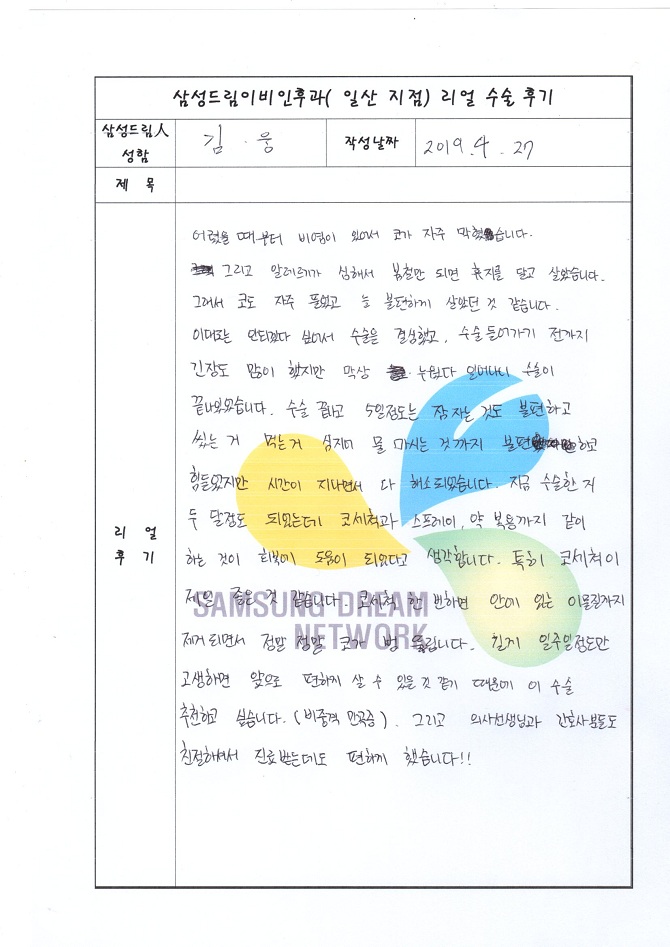 삼성드림이비인후과( 일산 지점) 리얼 수술 후기
삼성드림人 성함
김 . 웅
작성날짜
2019. 4. 27
제 목
리 얼
후 기
어렸을 때부터 비염이 있어서 코가 자주 막혔습니다.
그리고 알레르기가 심해서 봄철만 되면 휴지를 달고 살았습니다.
그래서 코도 자주 풀었고 늘 불편하게 살았던 것 같습니다.
이대로는 안되겠다 싶어서 수술을 결심했고, 수술 들어가기 전까지
긴장도 많이 했지만 막상 누웠다 일어나니 수술이
끝나있었습니다. 수술 끝나고 5일정도는 잠 자는 것도 불편하고
씻는 거 먹는거 심지어 물 마시는 것까지 불편하고
힘들었지만 시간이 지나면서 다 해소되었습니다. 지금 수술한 지
두 달정도 되었는데 코세척과 스프레이, 약 복용까지 같이
하는 것이 회복에 도움이 되었다고 생각합니다. 특히 코세척이
제일 좋은 것 같습니다. 코세척 한 번하면 안에 있는 이물질까지
제거되면서 정말 정말 코가 뻥 뚫립니다. 길게 일주일정도만
고생하면 앞으로 편하게 살 수 있을 것 같기 때문에 이 수술
추천하고 싶습니다. (비중격 만곡증). 그리고 의사선생님과 간호사분들도
친절하셔서 진료받는데도 편하게 했습니다!!
SAMSUNG DREAM
NETWORK